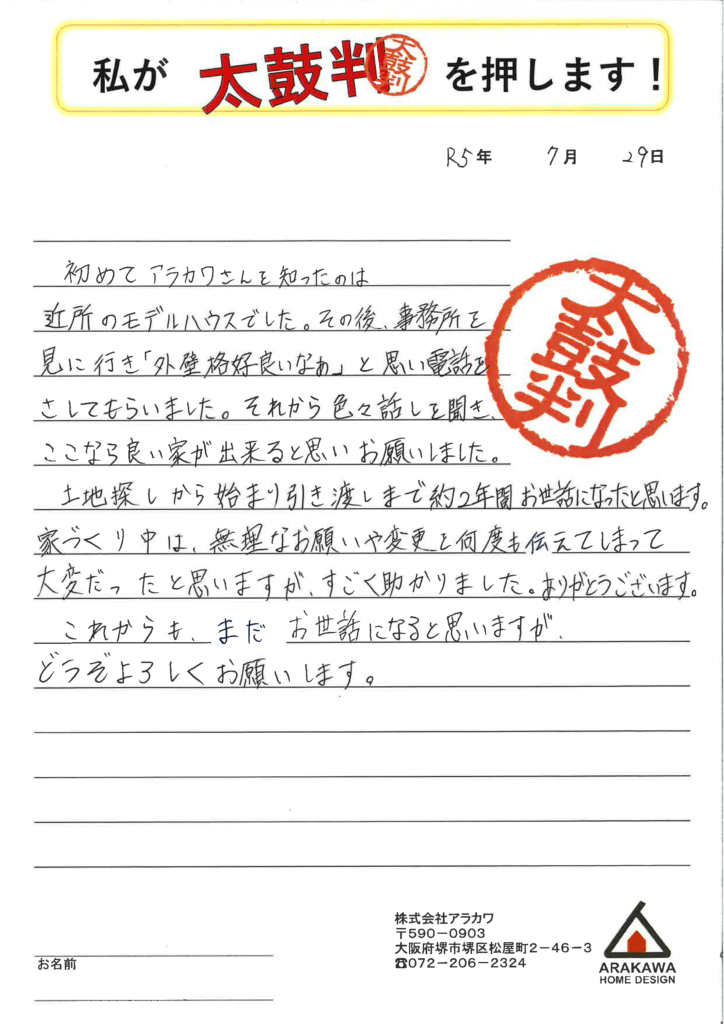 私が 太鼓判 太鼓判 を押します！
R5年 7月 29日
初めてアラカワさんを知ったのは
近所のモデルハウスでした。その後、事務所を
見に行き「外壁格好良いなぁ」と思い電話を
さしてもらいました。それから色々話しを聞き、
ここなら良い家が出来ると思いお願いしました。
太鼓判
土地探しから始まり引き渡しまで約2年間お世話になったと思います。
家づくり中は、無理なお願いや変更を何度も伝えてしまって
大変だったと思いますが、すごく助かりました。ありがとうございます。
これからも、まだ お世話になると思いますが、
どうぞよろしくお願いします。
株式会社アラカワ
〒590－0903
大阪府堺市堺区松屋町2－46－3
☎072－206－2324
ARAKAWA
HOME DESIGN
お名前